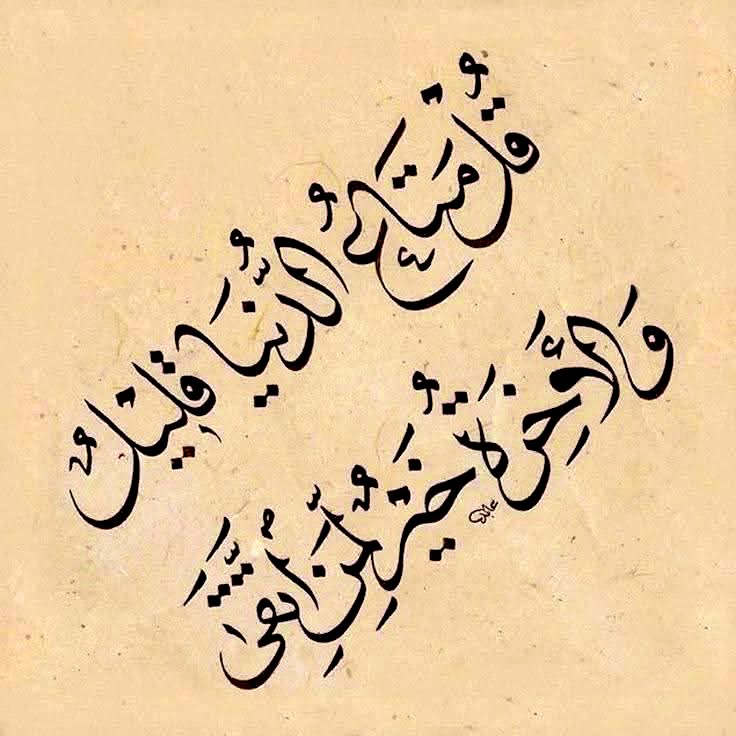 قُلْ مَتَاعُ الدُّنْيَا قَلِيلٌ
وَالْآخِرَةُ خَيْرٌ لِمَنِ اتَّقَىٰ